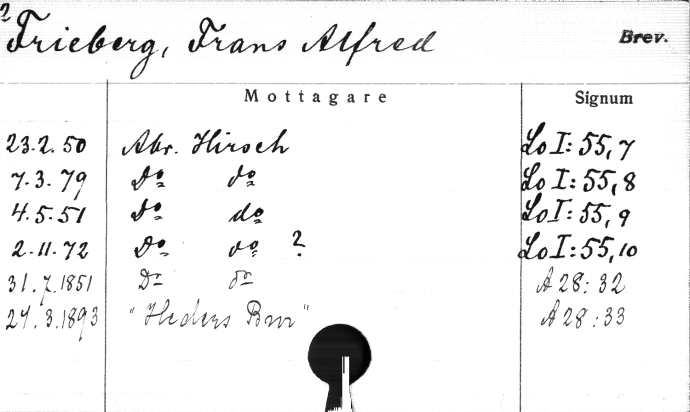 ?
Frieberg, Frans Alfred Brev.
Mottagare Signum
23.2.50 Abr. Hirsch Lo I: 55,7
7.3.79 Do do Lo I: 55,8
4.5.51 Do do Lo I: 55,9
2.11.72 Do do ? Lo I: 55,10
31.7.1851 Do do A 28: 32
24.3.1893 "Heders Bror" A 28: 33